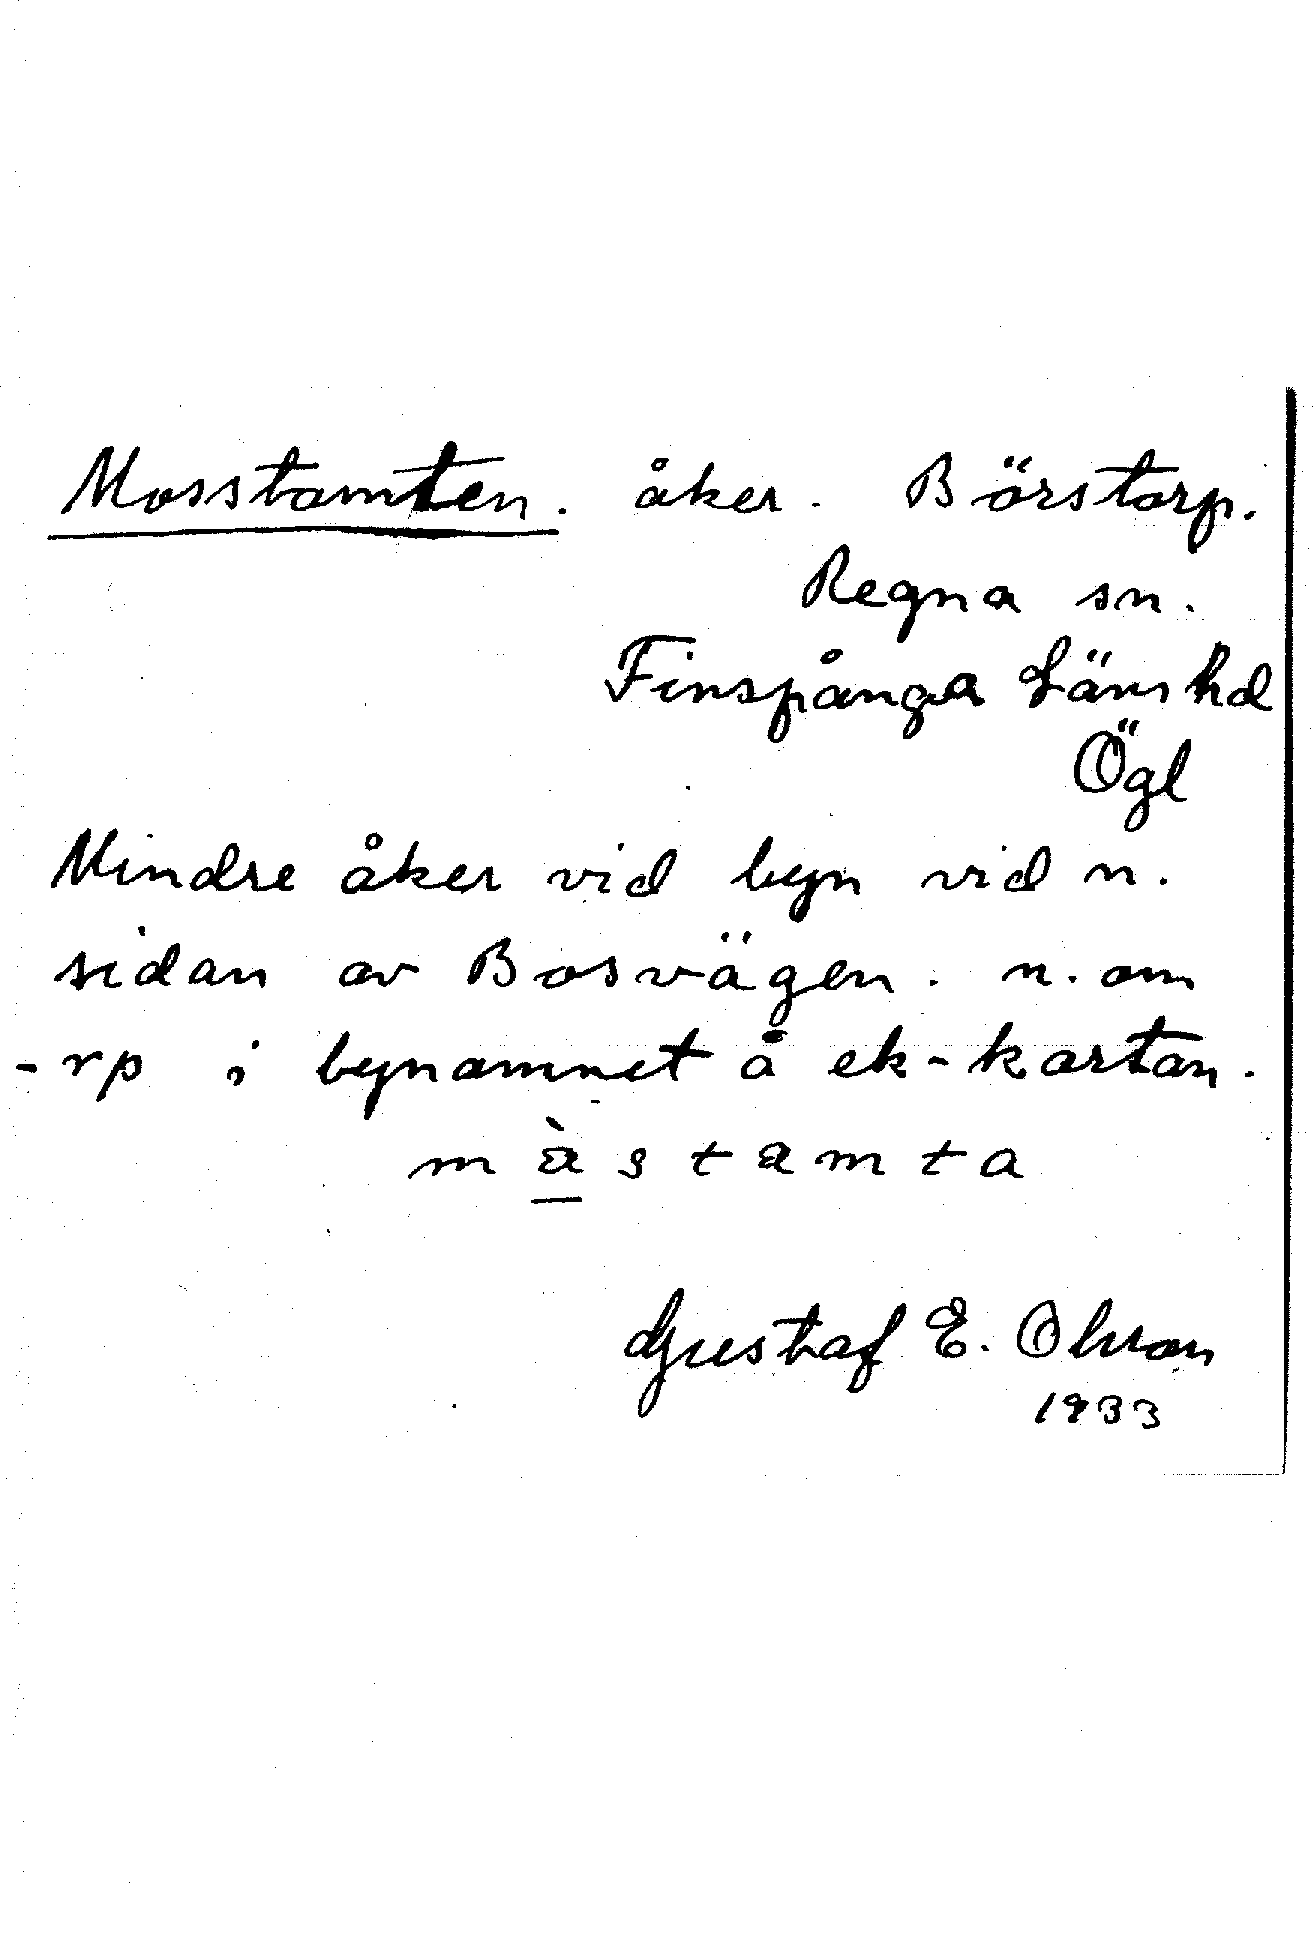 Mosstamten. åker. Börstorp.
Regna sn.
Finspånga Läns hd
Ögl
Mindre åker vid byn vid n.
sidan av Bosvägen. n. om
-rp i bynamnet å ek-kartan.
màstamta
Gustaf E. Olsson
1933